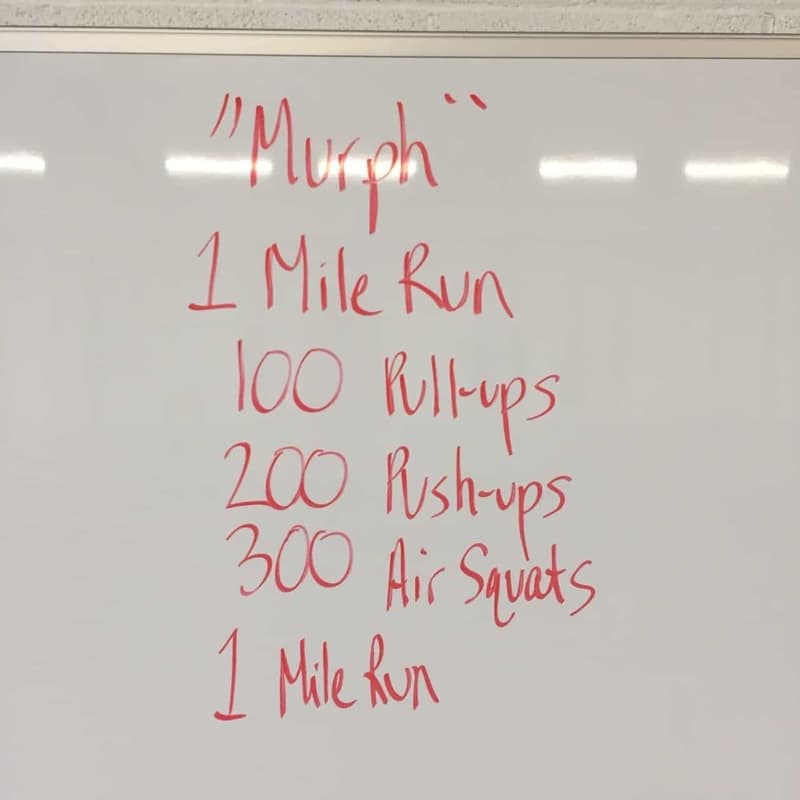 "Murph"
1 Mile Run
100 Pull-ups
200 Push-ups
300 Air Squats
1 Mile Run